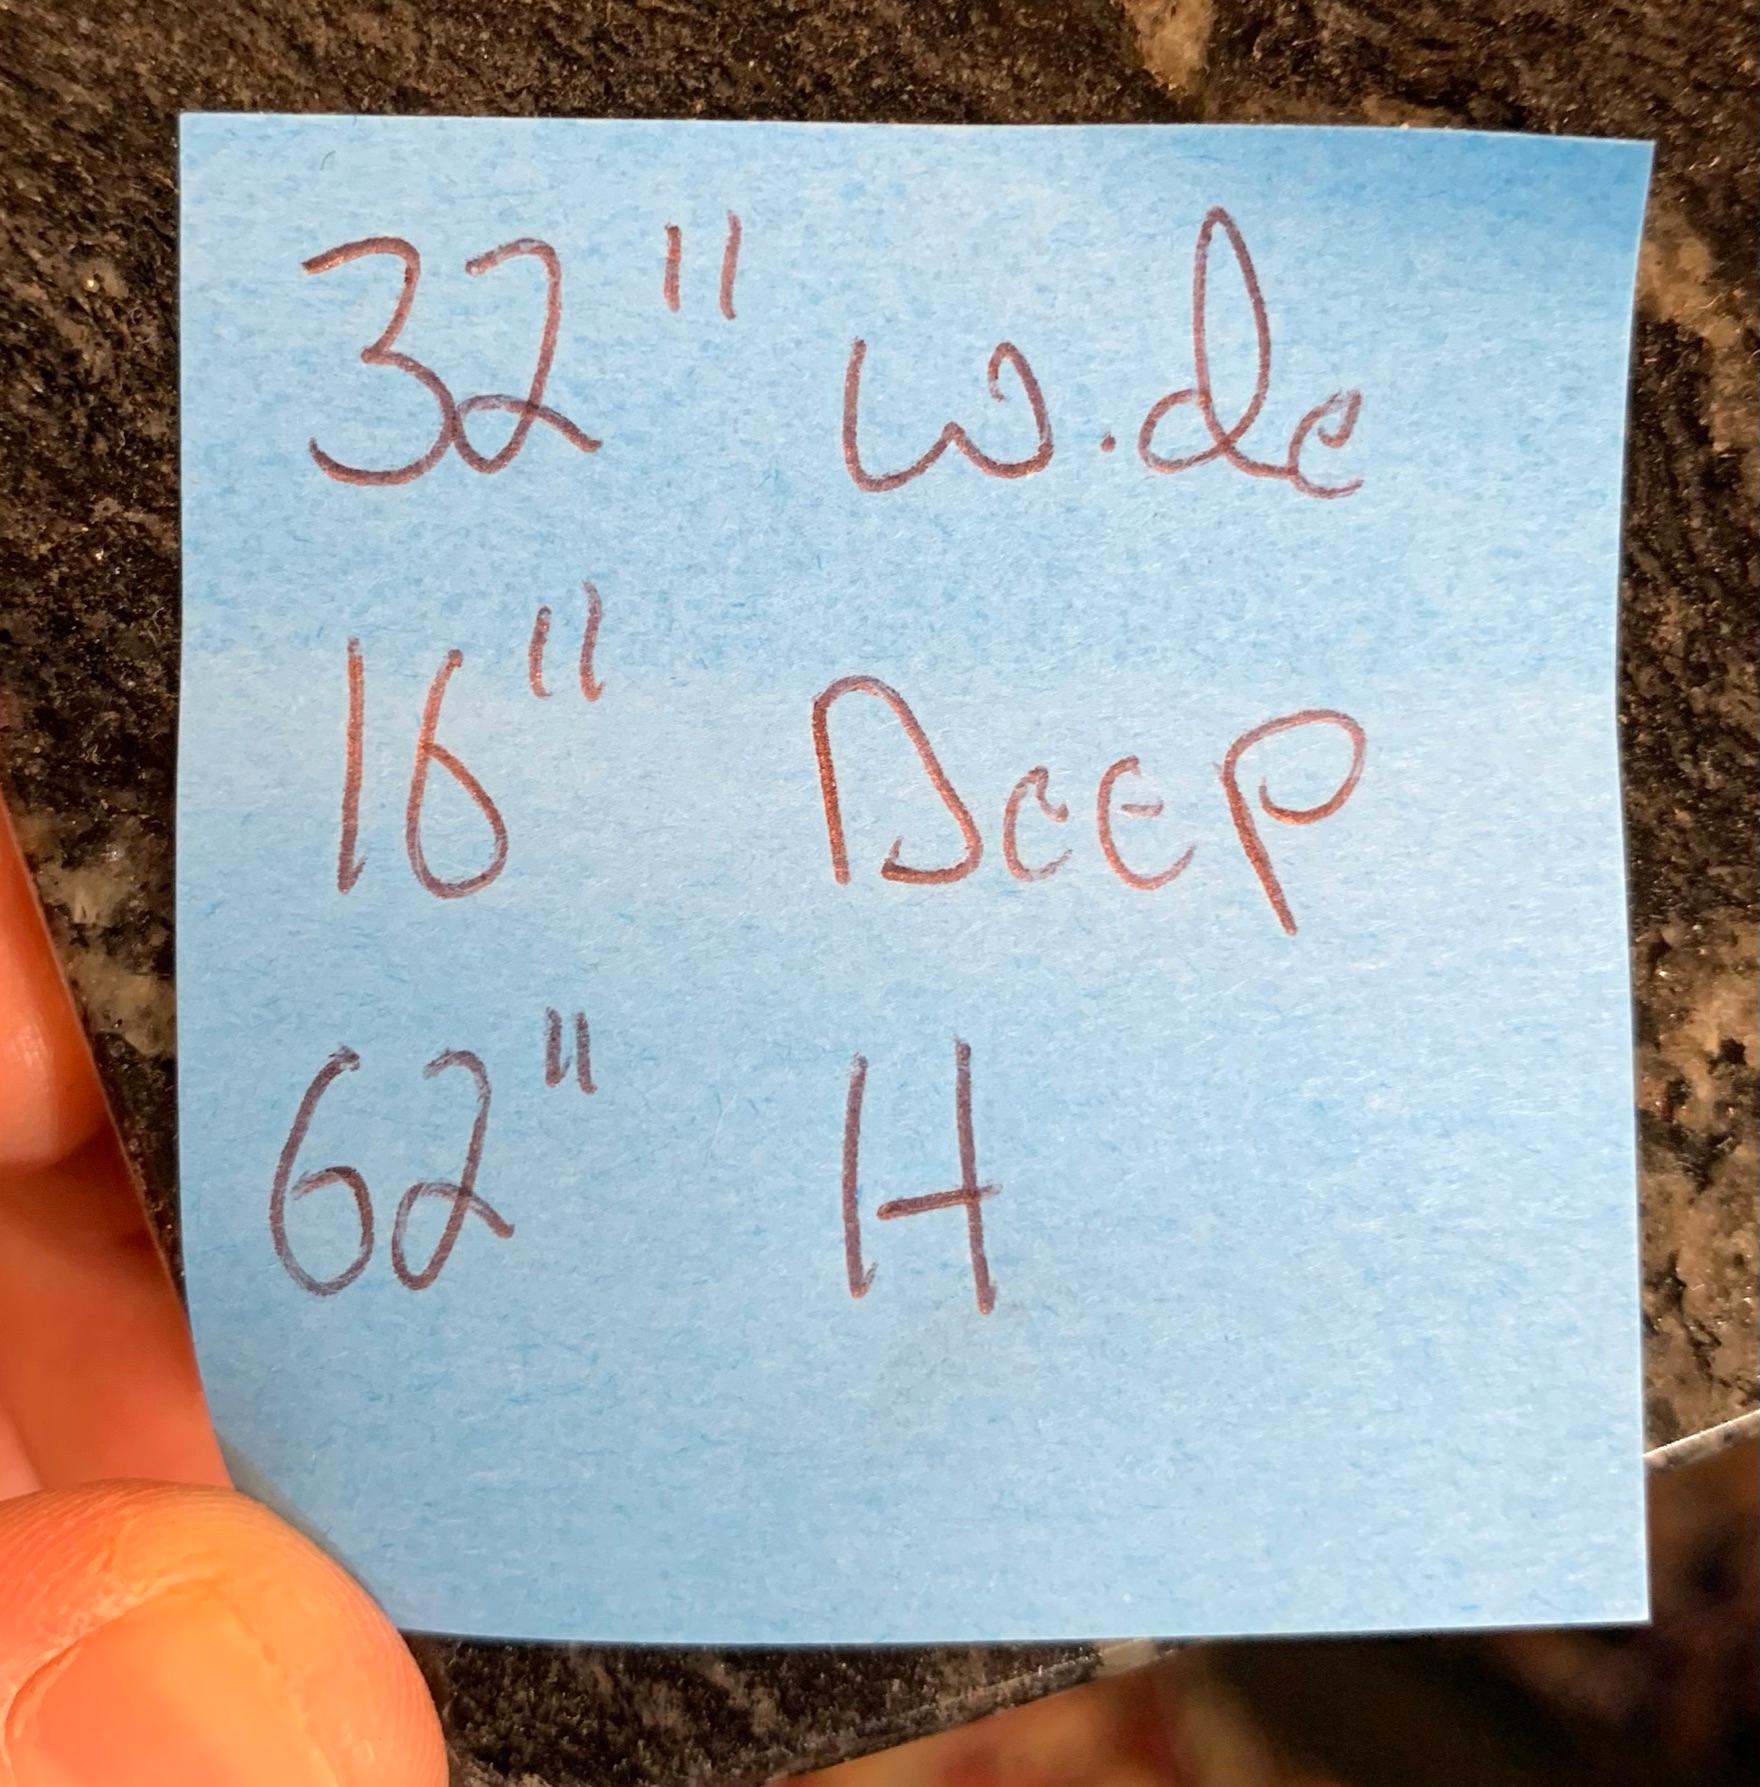 32" Wide
16" DEEP
62" H